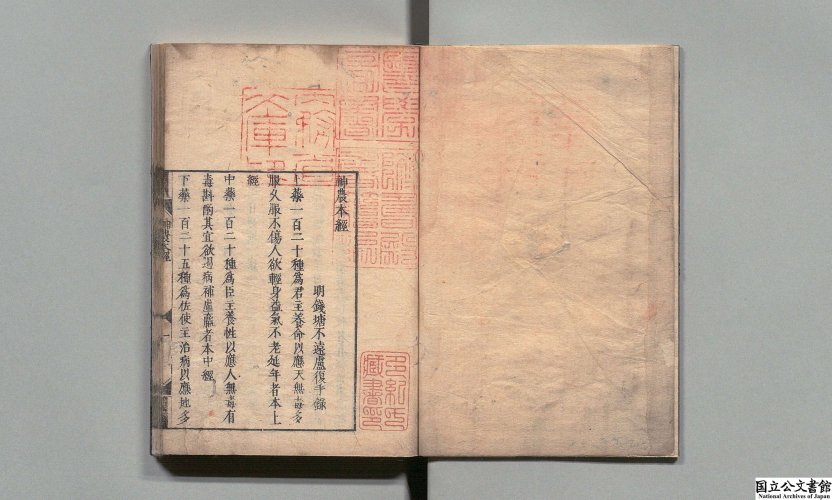 神農本經
明錢塘不遠盧復手錄
上藥一百二十種為君主養命以應天無毒多
服久服不傷人欲輕身益氣不老延年者本上
經
中藥一百二十種為臣主養性以應人無毒有
毒斟酌其宜欲遏病補虛羸者本中經
下藥一百二十五種為佐使主治病以應地多
神農本經
一
国立公文書館
National Archives of Japan